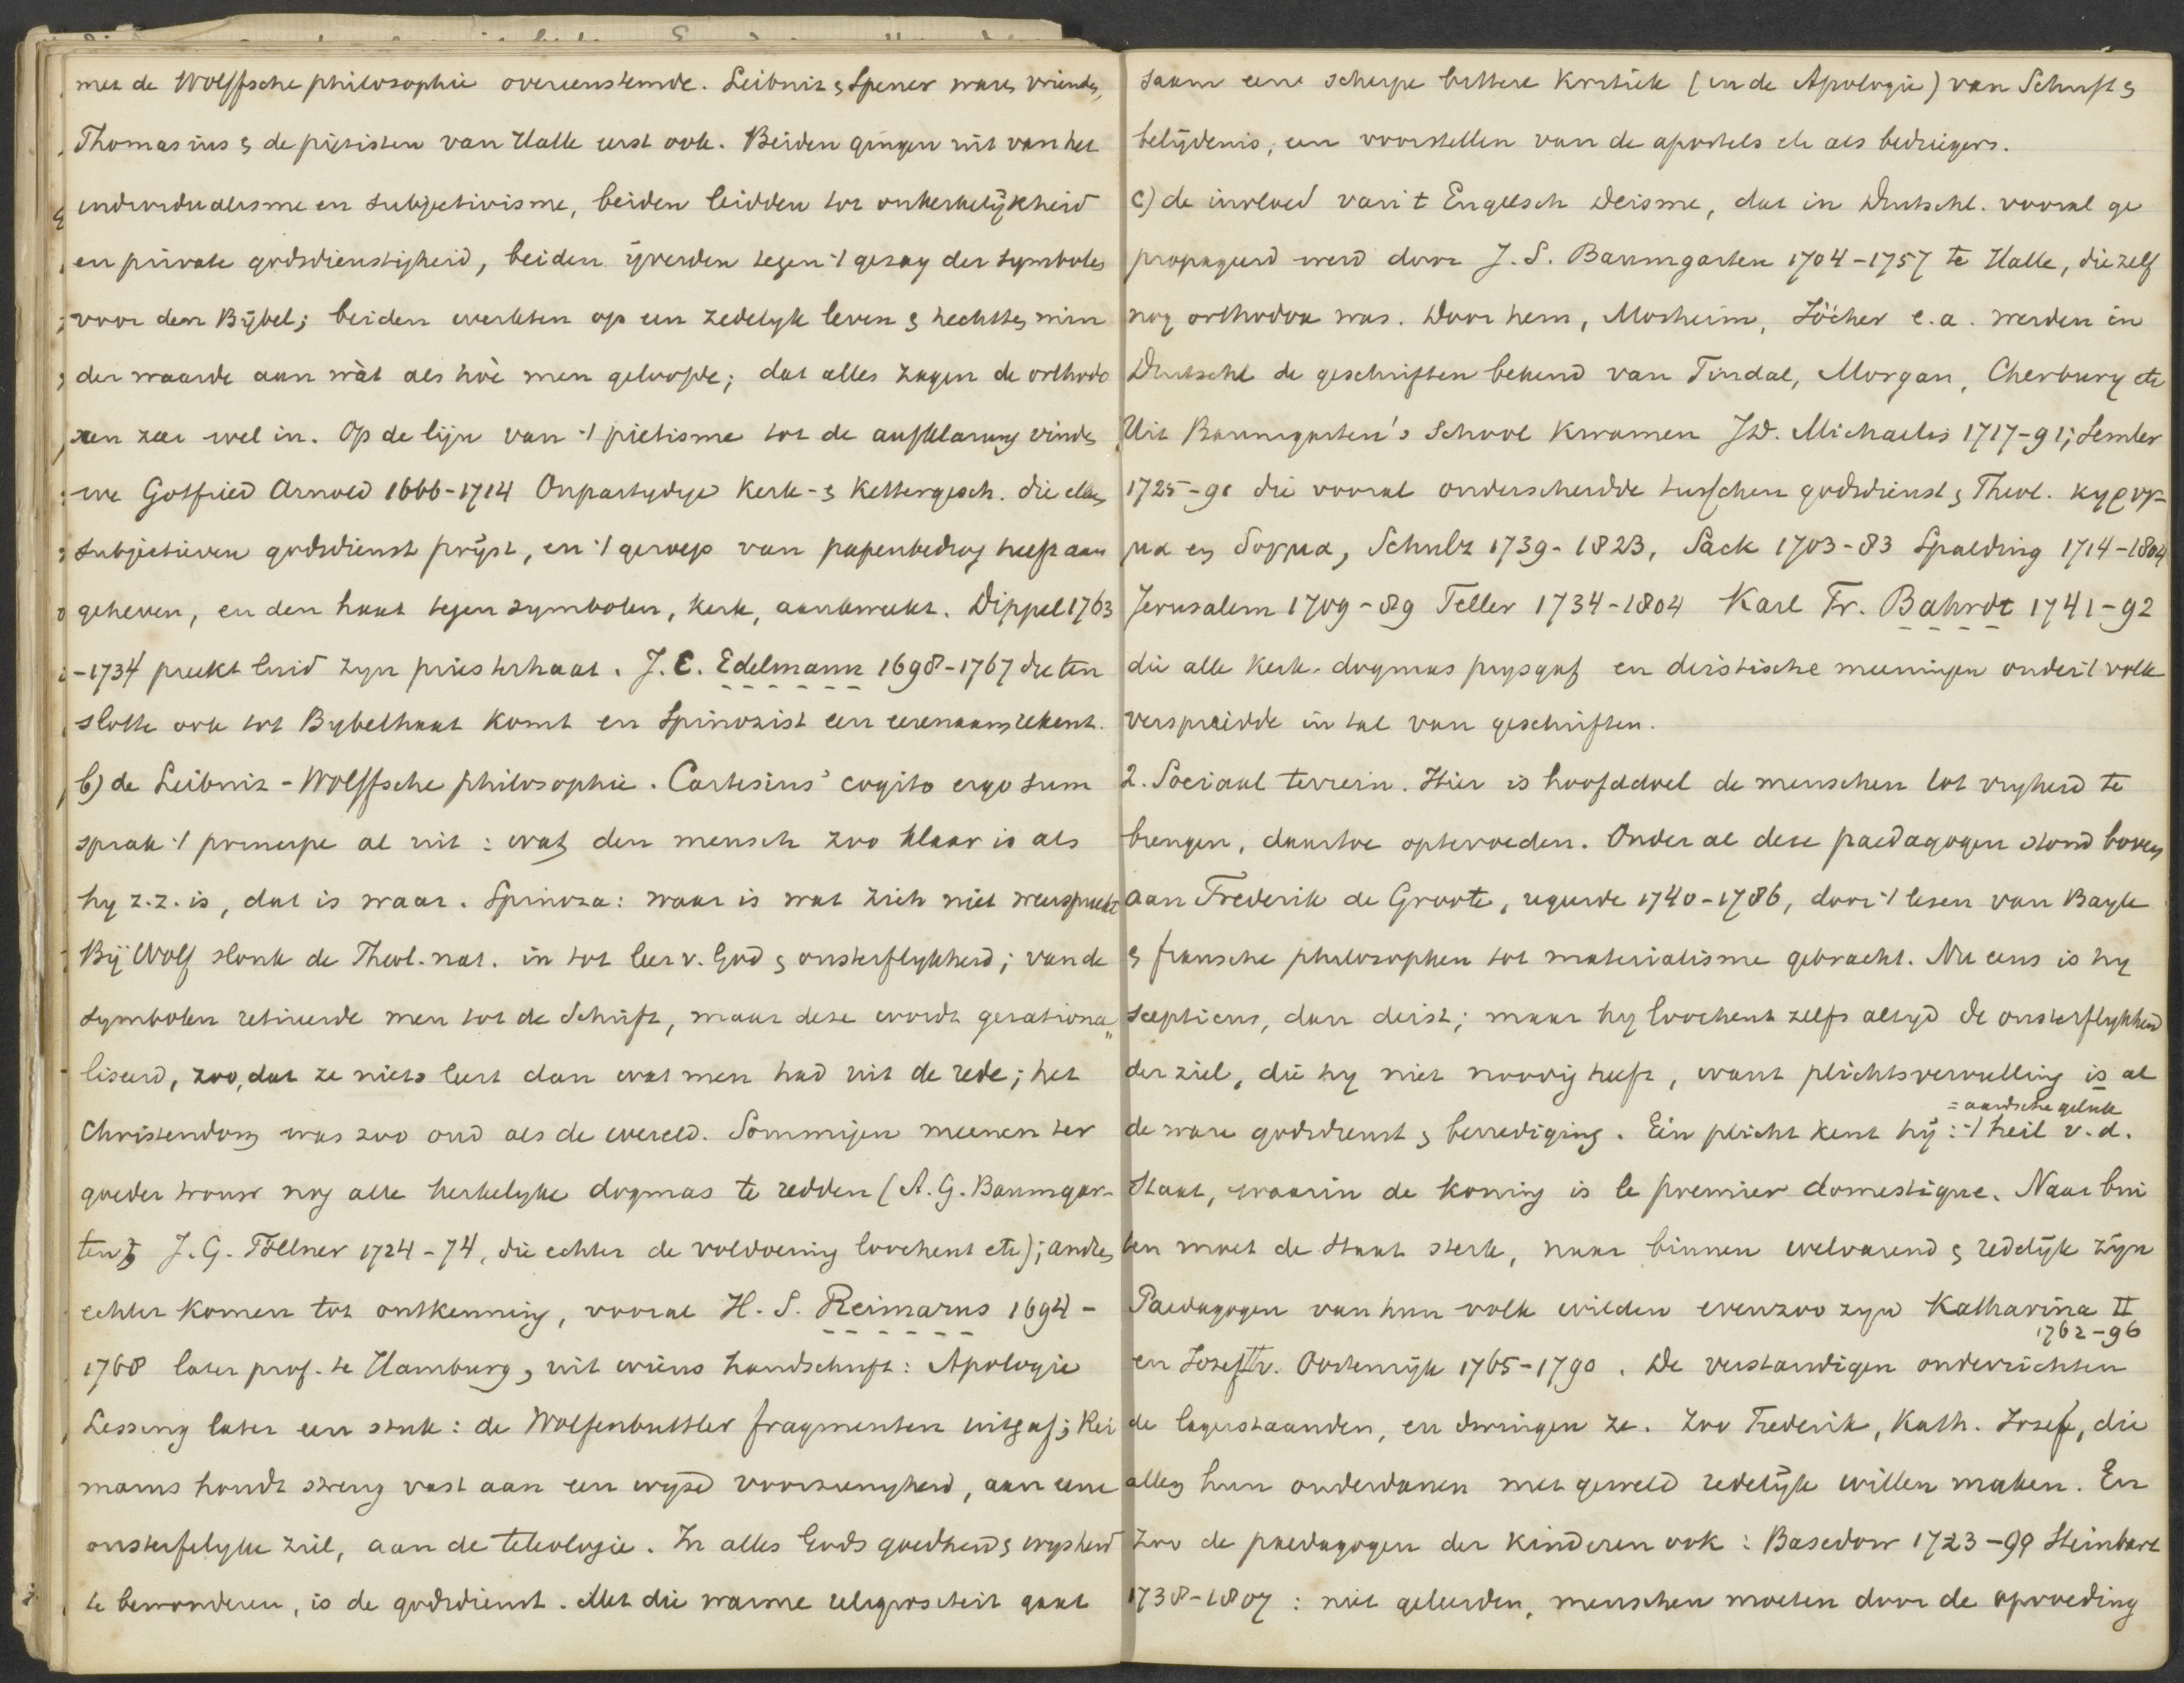 met de Wolffsche philosophie overeenstemde. Leibniz & Spener waren vrienden,
Thomasius & de piëtisten van Halle eerst ook. Beiden gingen uit van het
individualisme en subjectivisme, beiden leidden tot onkerkelijkheid
en private godsdienstigheid, beiden ijverden tegen 't gezag der symbolen
voor den Bijbel; beiden werkten op een zedelyk leven & hechtten min
der waarde aan wàt als hòe men geloofde; dat alles zagen de orthodo
xen zeer wel in. Op de lijn van 't pietisme tot de aufklärung vinden
we Gotfried Arnold 1666-1714 Onpartydige Kerk- & Kettergesch. die allen
subjectieven godsdienst prijst, en 't geroep van papenbedrog heeft aan
geheven, en den haat tegen symbolen, kerk, aankweekt. Dippel 1763
-1734 preekt luid zyn priesterhaat. J. C. Edelmann 1698-1767 die ten
slotte ook tot Bybelhaat komt en Spinozist een eerenaam rekent.
b) de Leibniz-Wolffsche philosophie. Cartesius' cogito ergo sum
sprak 't principe al uit: wat den mensch zoo klaar is als
hy z.z. is, dat is waar. Spinoza: waar is wat zich niet weerspreekt
Bij Wolf slonk de Theol. nat. in tot leer v. God & onsterflykheid; van de
symbolen retireerde men tot de Schrift, maar deze wordt gerationa„
liseerd, zoo, dat ze niets leert dan wat men had uit de rede; het
Christendom was zoo oud als de wereld. Sommigen meenen ter
goeder trouw nog alle kerkelyke dogmas te redden (A. G. Baumgar-
ten & J. G. Töllner 1724-74, die echter de voldoening loochent etc); andren
echter komen tot ontkenning, vooral H. S. Reimarus 1694-
1768 later prof. te Hamburg, uit wiens handschrift: Apologie
Lessing later een stuk: de Wolfenbuttler fragmenten uitgaf; Rei
marus houdt streng vast aan een wyze voorzienigheid, aan eene
onsterfelyke ziel, aan de teleologie. In alles Gods goedheid & wysheid
te bewonderen, is de godsdienst. Met die warme religiositeit gaat
saam eene scherpe bittere Kritiek (in de Apologie) van Schrift &
belijdenis, een voorstellen van de apostels etc als bedriegers.
c) de invloed van 't Engelsch Deisme, dat in Duitschl. vooral ge
propageerd werd door J. S. Baumgarten 1704-1757 te Halle, die zelf
nog orthodox was. Door hem, Mosheim, Jöcher e.a. werden in
Duitschl de geschriften bekend van Tindal, Morgan, Cherbury etc
Uit Baumgarten's School kwamen J.D. Michaelis 1717-91; Semler
1725-91 die vooral onderscheidde tusschen godsdienst & Theol. κηρυγ-
μα en δογμα, Schulz 1739-1823, Sack 1703-83 Spalding 1714-1804
Jerusalem 1709-89 Teller 1734-1804 Karl Fr. Bahrdt 1741-92
die alle kerk. dogmas prysgaf en deistische meeningen onder 't volk
verspreidde in tal van geschriften.
2. Sociaal terrein. Hier is hoofddoel de menschen tot vryheid te
brengen, daartoe optevoeden. Onder al deze paedagogen stond boven
aan Frederik de Groote, regeerde 1740-1786, door 't lezen van Bayle
& fransche philosophen tot materialisme gebracht. Nu eens is hy
scepticus, dan deist; maar hy loochent zelfs altyd de onsterflykheid
der ziel, die hy niet noodig heeft, want plichtsvervulling is al
= aardsche geluk
de ware godsdienst & bevrediging. Eén plicht kent hij: 't heil v. d.
Staat, waarin de koning is le premier domestique. Naar bui
ten moet de Staat sterk, naar binnen welvarend & redelijk zijn
Paedagogen van hun volk wilden evenzoo zyn Katharina II
1762-96
en Josef II v. Oostenrijk 1765-1790. De verstandigen onderrichten
de lagerstaanden, en dwingen ze. Zoo Frederik, Kath. Josef, die
allen hun onderdanen met geweld redelijk willen maken. En
Zoo de paedagogen der kinderen ook: Basedow 1723-90 Steinbart
1738-1809: niet geleerden, menschen moeten door de opvoeding